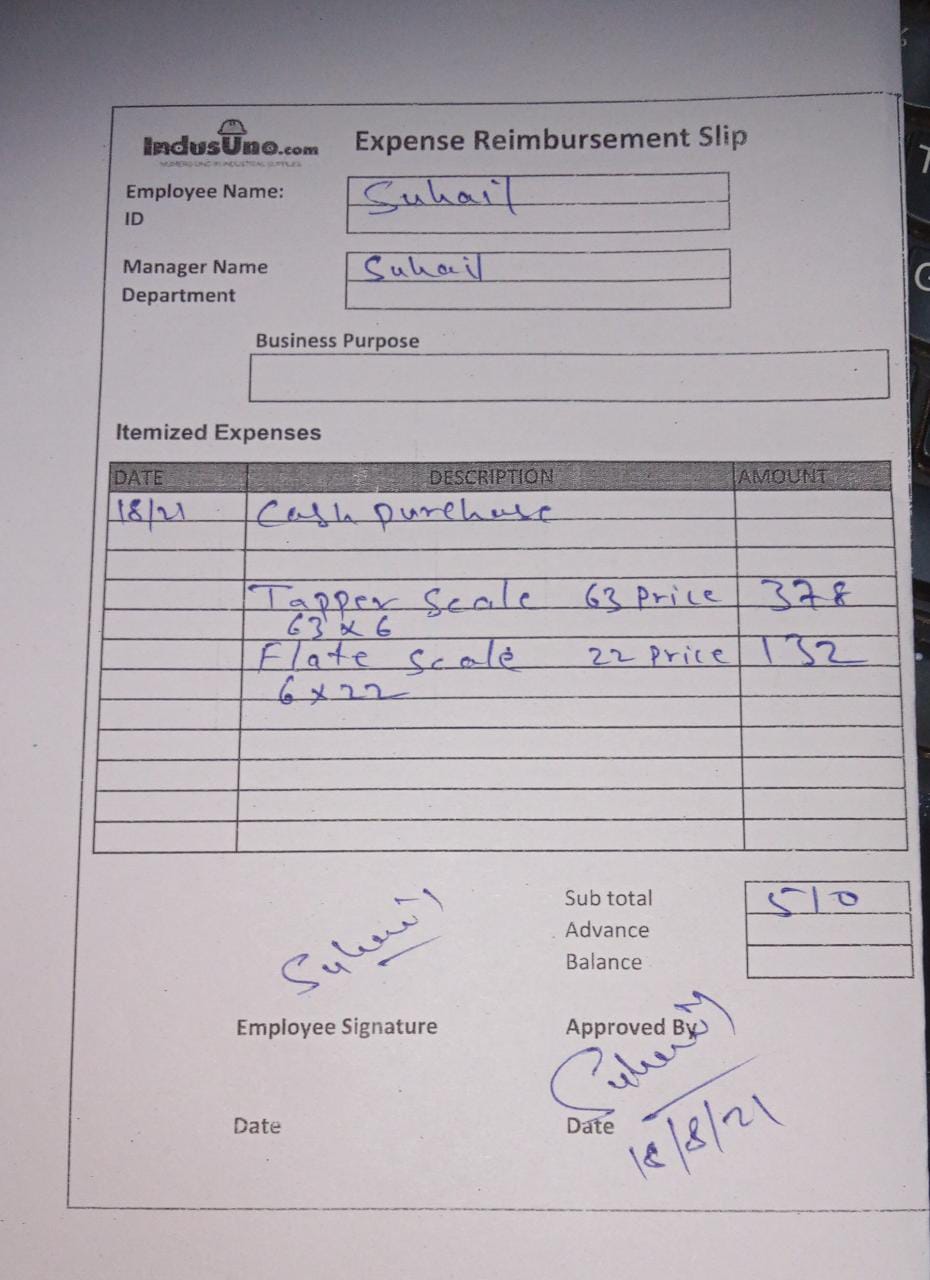 IndusUno.com
NUMERO UNO IN INDUSTRIAL SUPPLIES
Expense Reimbursement Slip
Employee Name: Suhail
ID
Manager Name Suhail
Department
Business Purpose
Itemized Expenses
DATE DESCRIPTION AMOUNT
18/21 Cash purchase
Tapper Scale 63 Price 378
63 x 6
Flate Scale 22 Price 132
6 x 22
Sub total 510
Advance
Balance
Suhail
Employee Signature Approved By
Suhail
Date Date 18/8/21